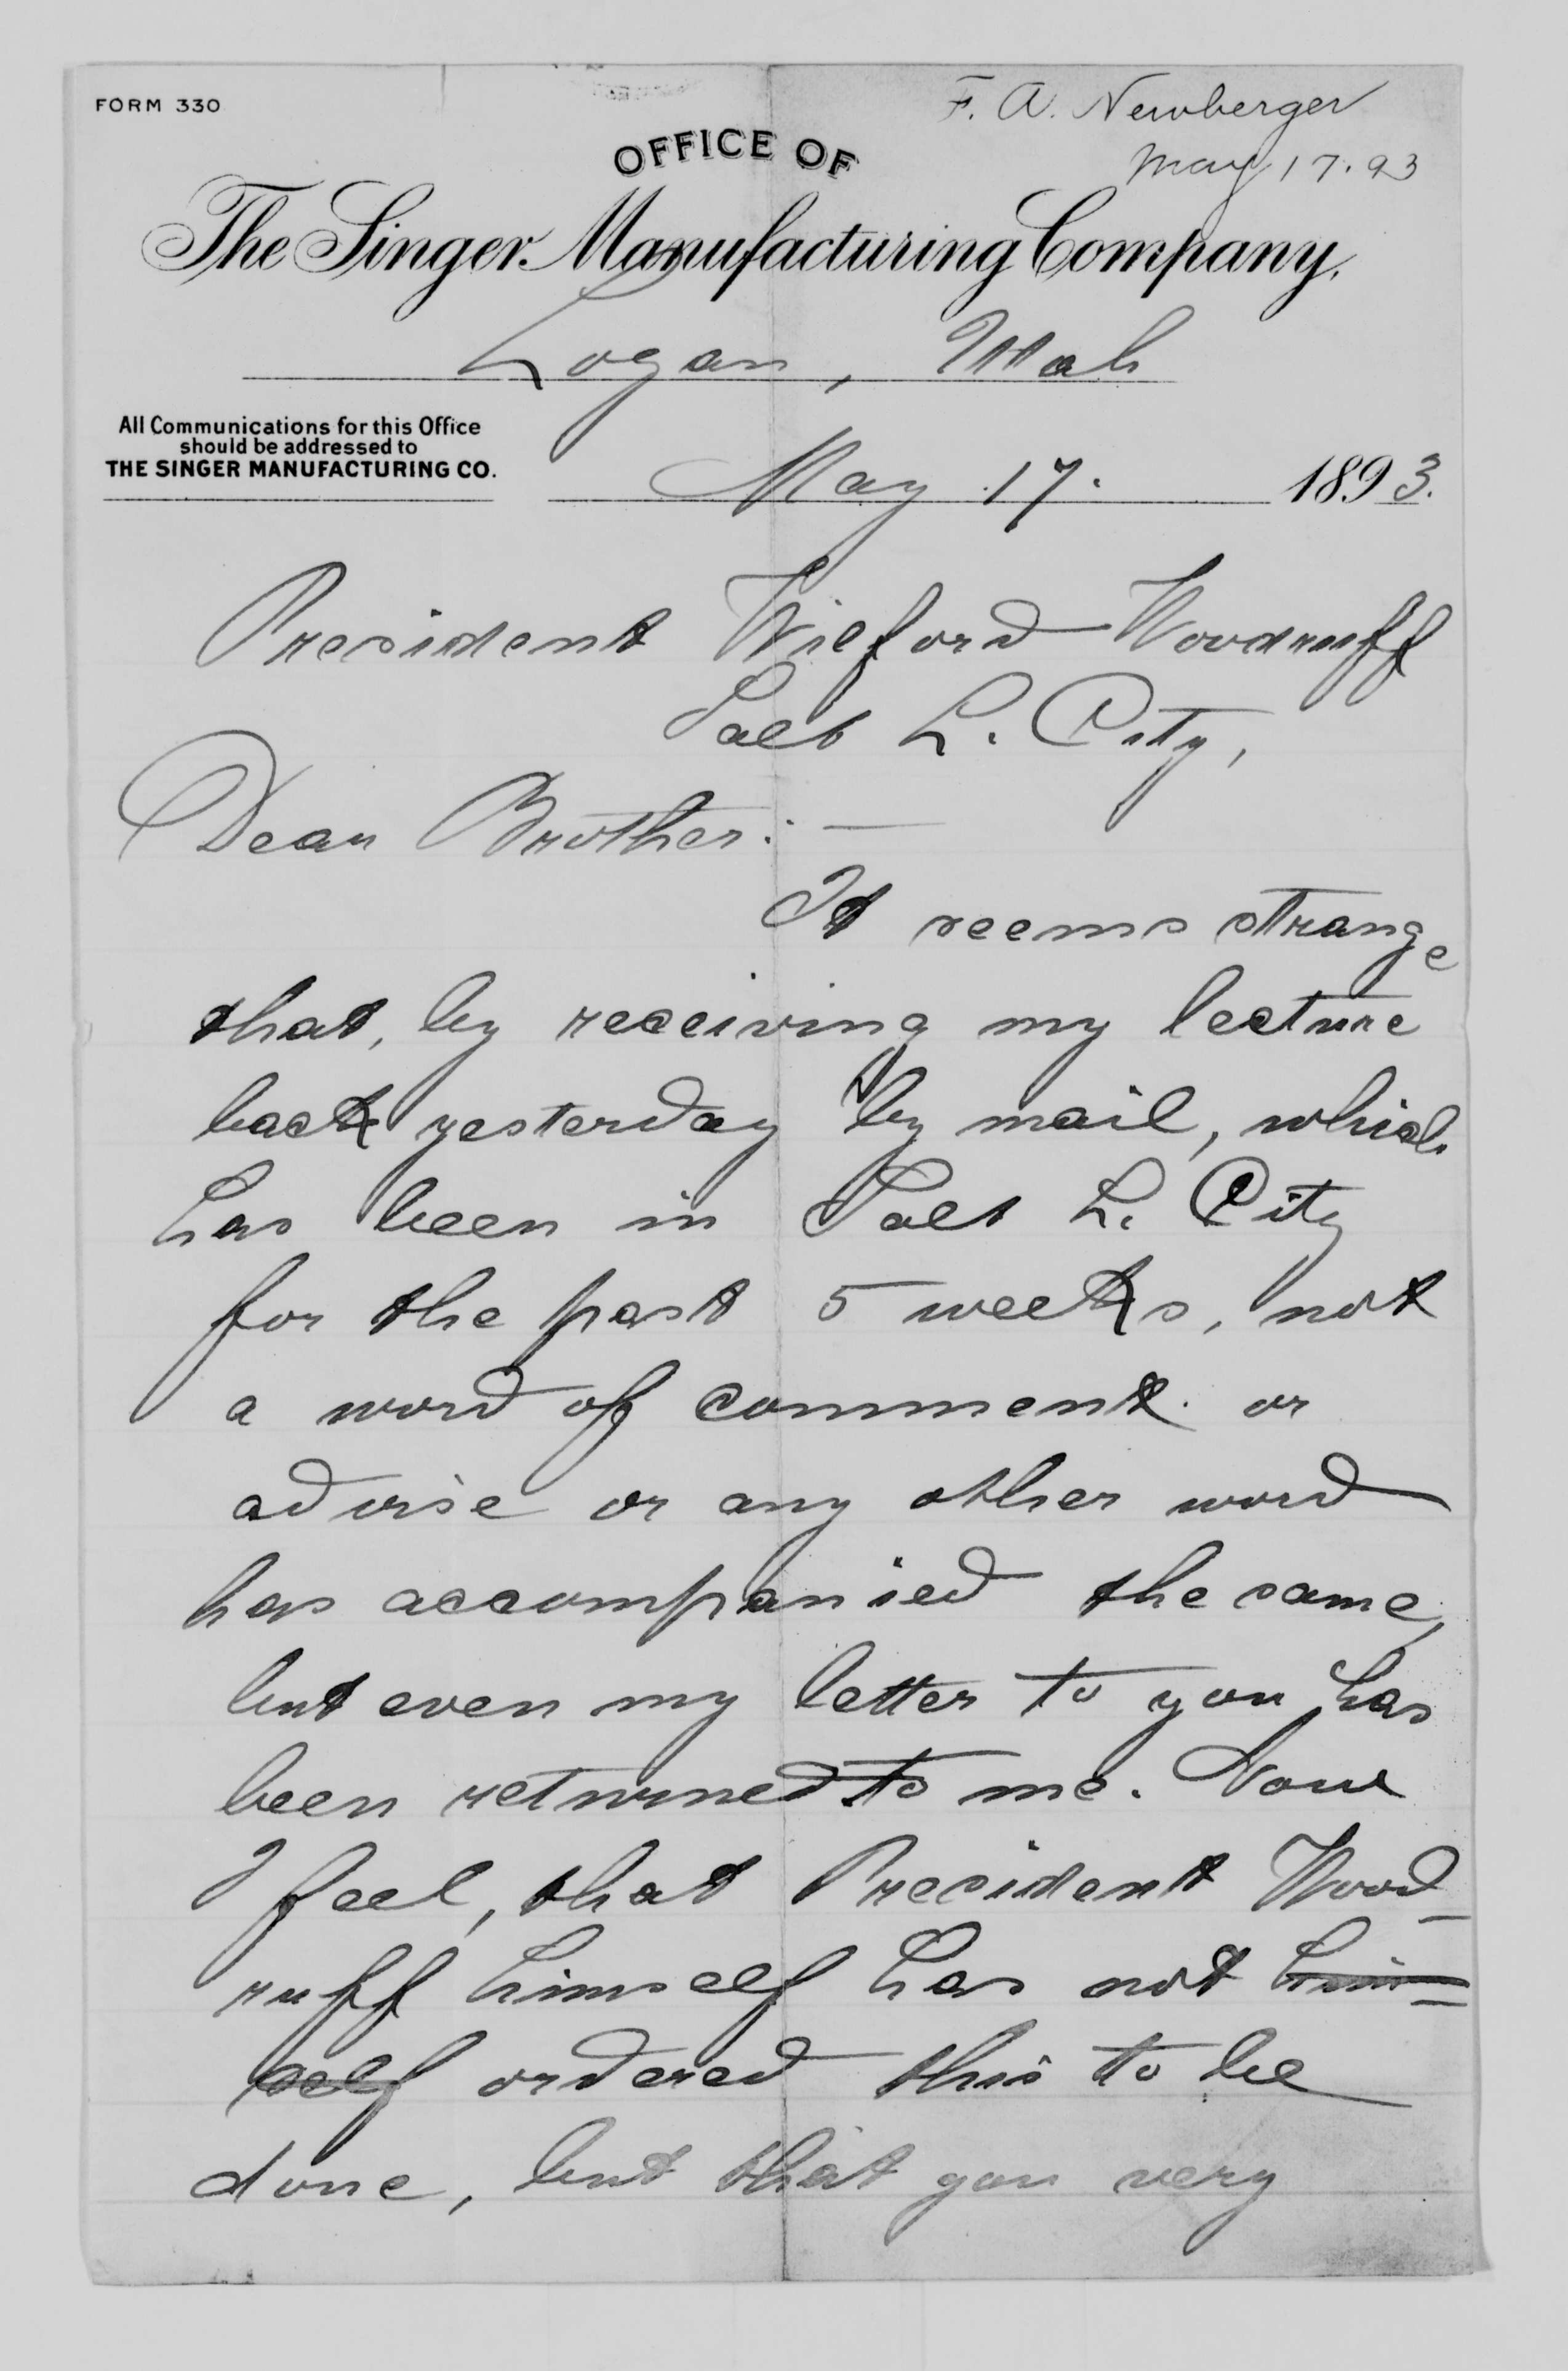 FORM 330
F. A. Newberger
May 17. 93
OFFICE OF
The Singer Manufacturing Company.
Logan, Utah
All Communications for this Office
should be addressed to
THE SINGER MANUFACTURING CO.
May 17. 1893.
President Wilford Woodruff
Salt L. City,
Dear Brother:—
It seems strange
that, by receiving my lecture
back yesterday by mail, which
has been in Salt L. City
for the past 5 weeks, not
a word of comment or
advise or any other word
has accompanied the same,
but even my letter to you has
been returned to me. Now
I feel, that President Wood-
ruff himself has not him-
self ordered this to be
done, but that you very